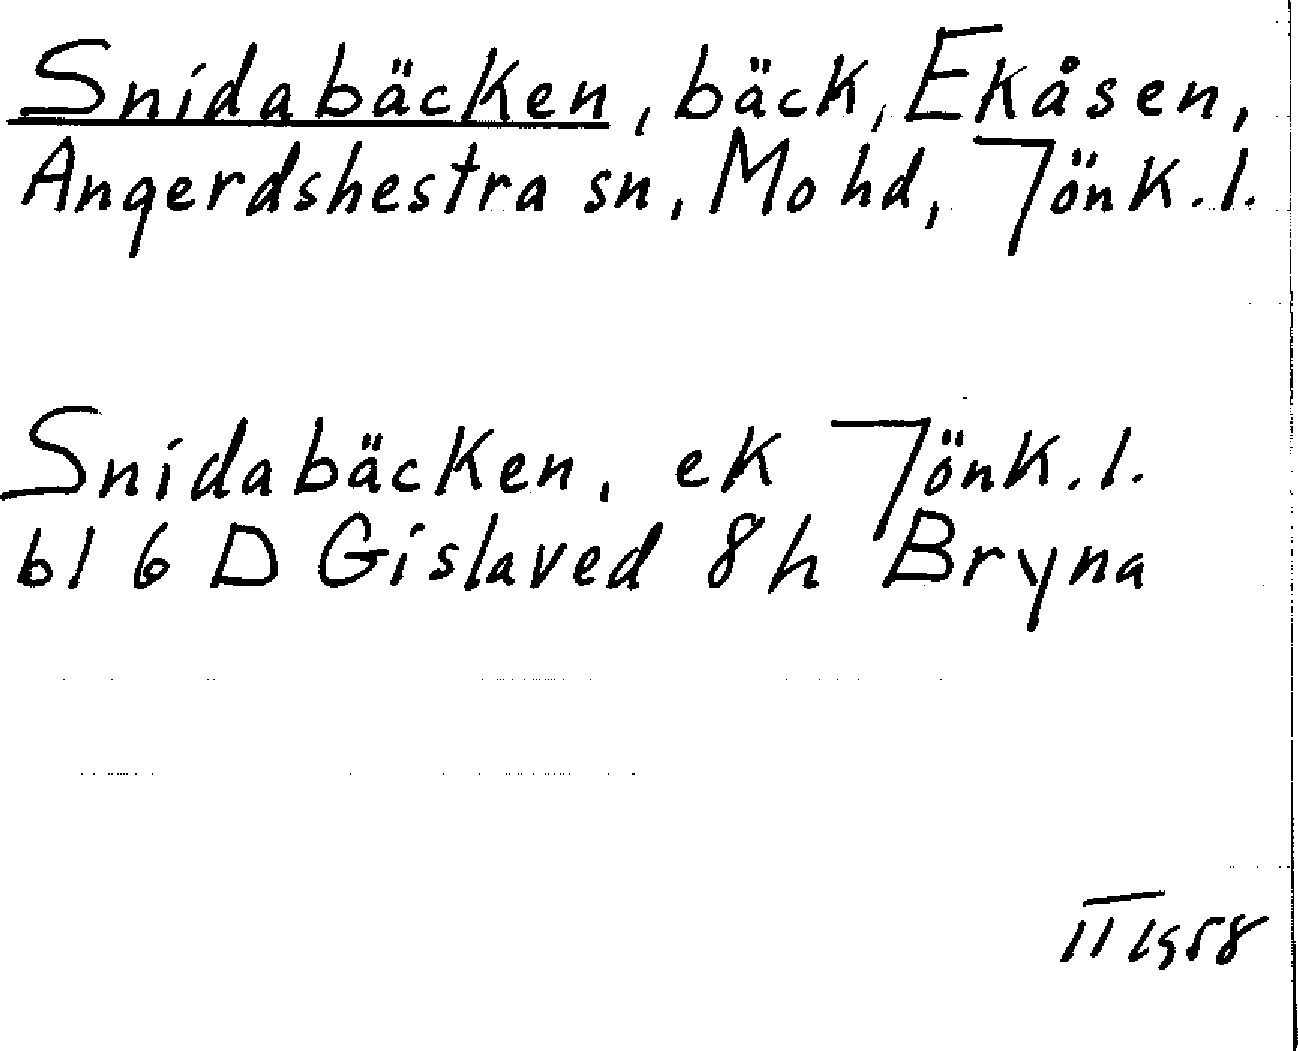 Snidabäcken, bäck, Ekåsen,
Angerdshestra sn, Mo hd, Jönk.l.
Snidabäcken, ek Jönk.l.
bl 6 D Gislaved 8h Bryna
II 1958